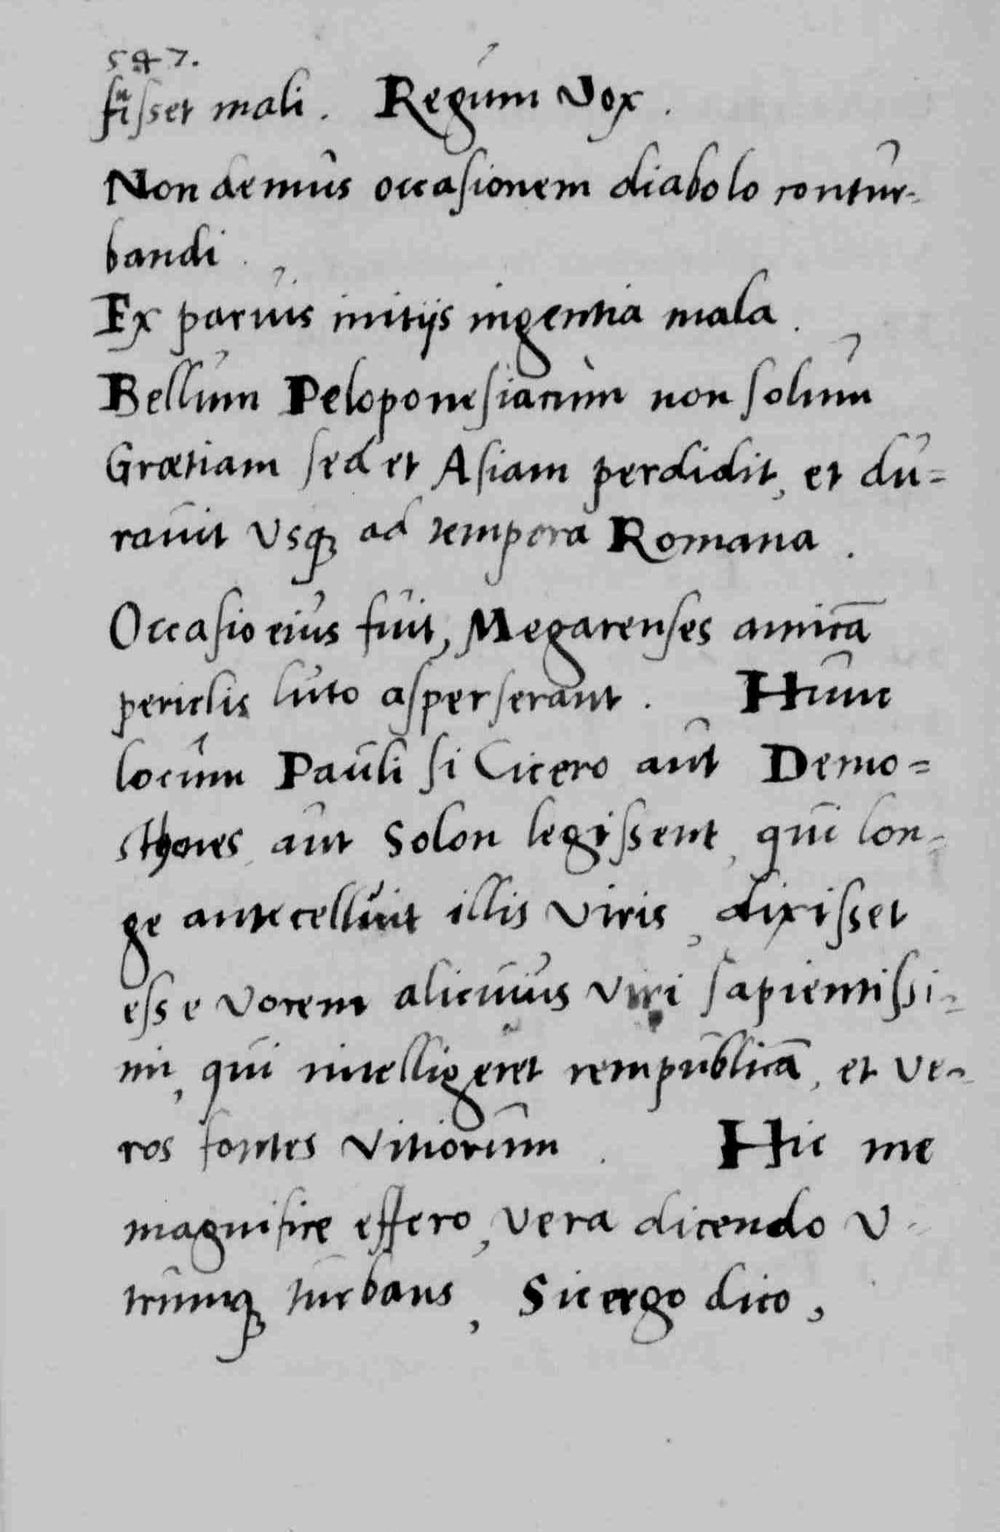 547.
fuisset mali. Regum Vox.
Non demus occasionem diabolo contur-
bandi.
Ex parvis initijs ingentia mala.
Bellum Peloponesiacum non solum
Grœtiam sed et Asiam perdidit, et du=
ravit Usq3 ad tempora Romana.
Occasio eius fuit, Megarenses amicā
periclis luto asperserant. Hunc
locum Pauli si Cicero aut Demo=
sthenes, aut Solon legissent, qui lon-
ge antecelluit illis viris, dixisset
esse vocem alicuius viri sapientissi-
mi, qui intelligeret rempublicā, et ve-
ros fontes vitiorum. Hic me
magnifice effero, vera dicendo v-
trumq3 turbans, Sic ergo dico,